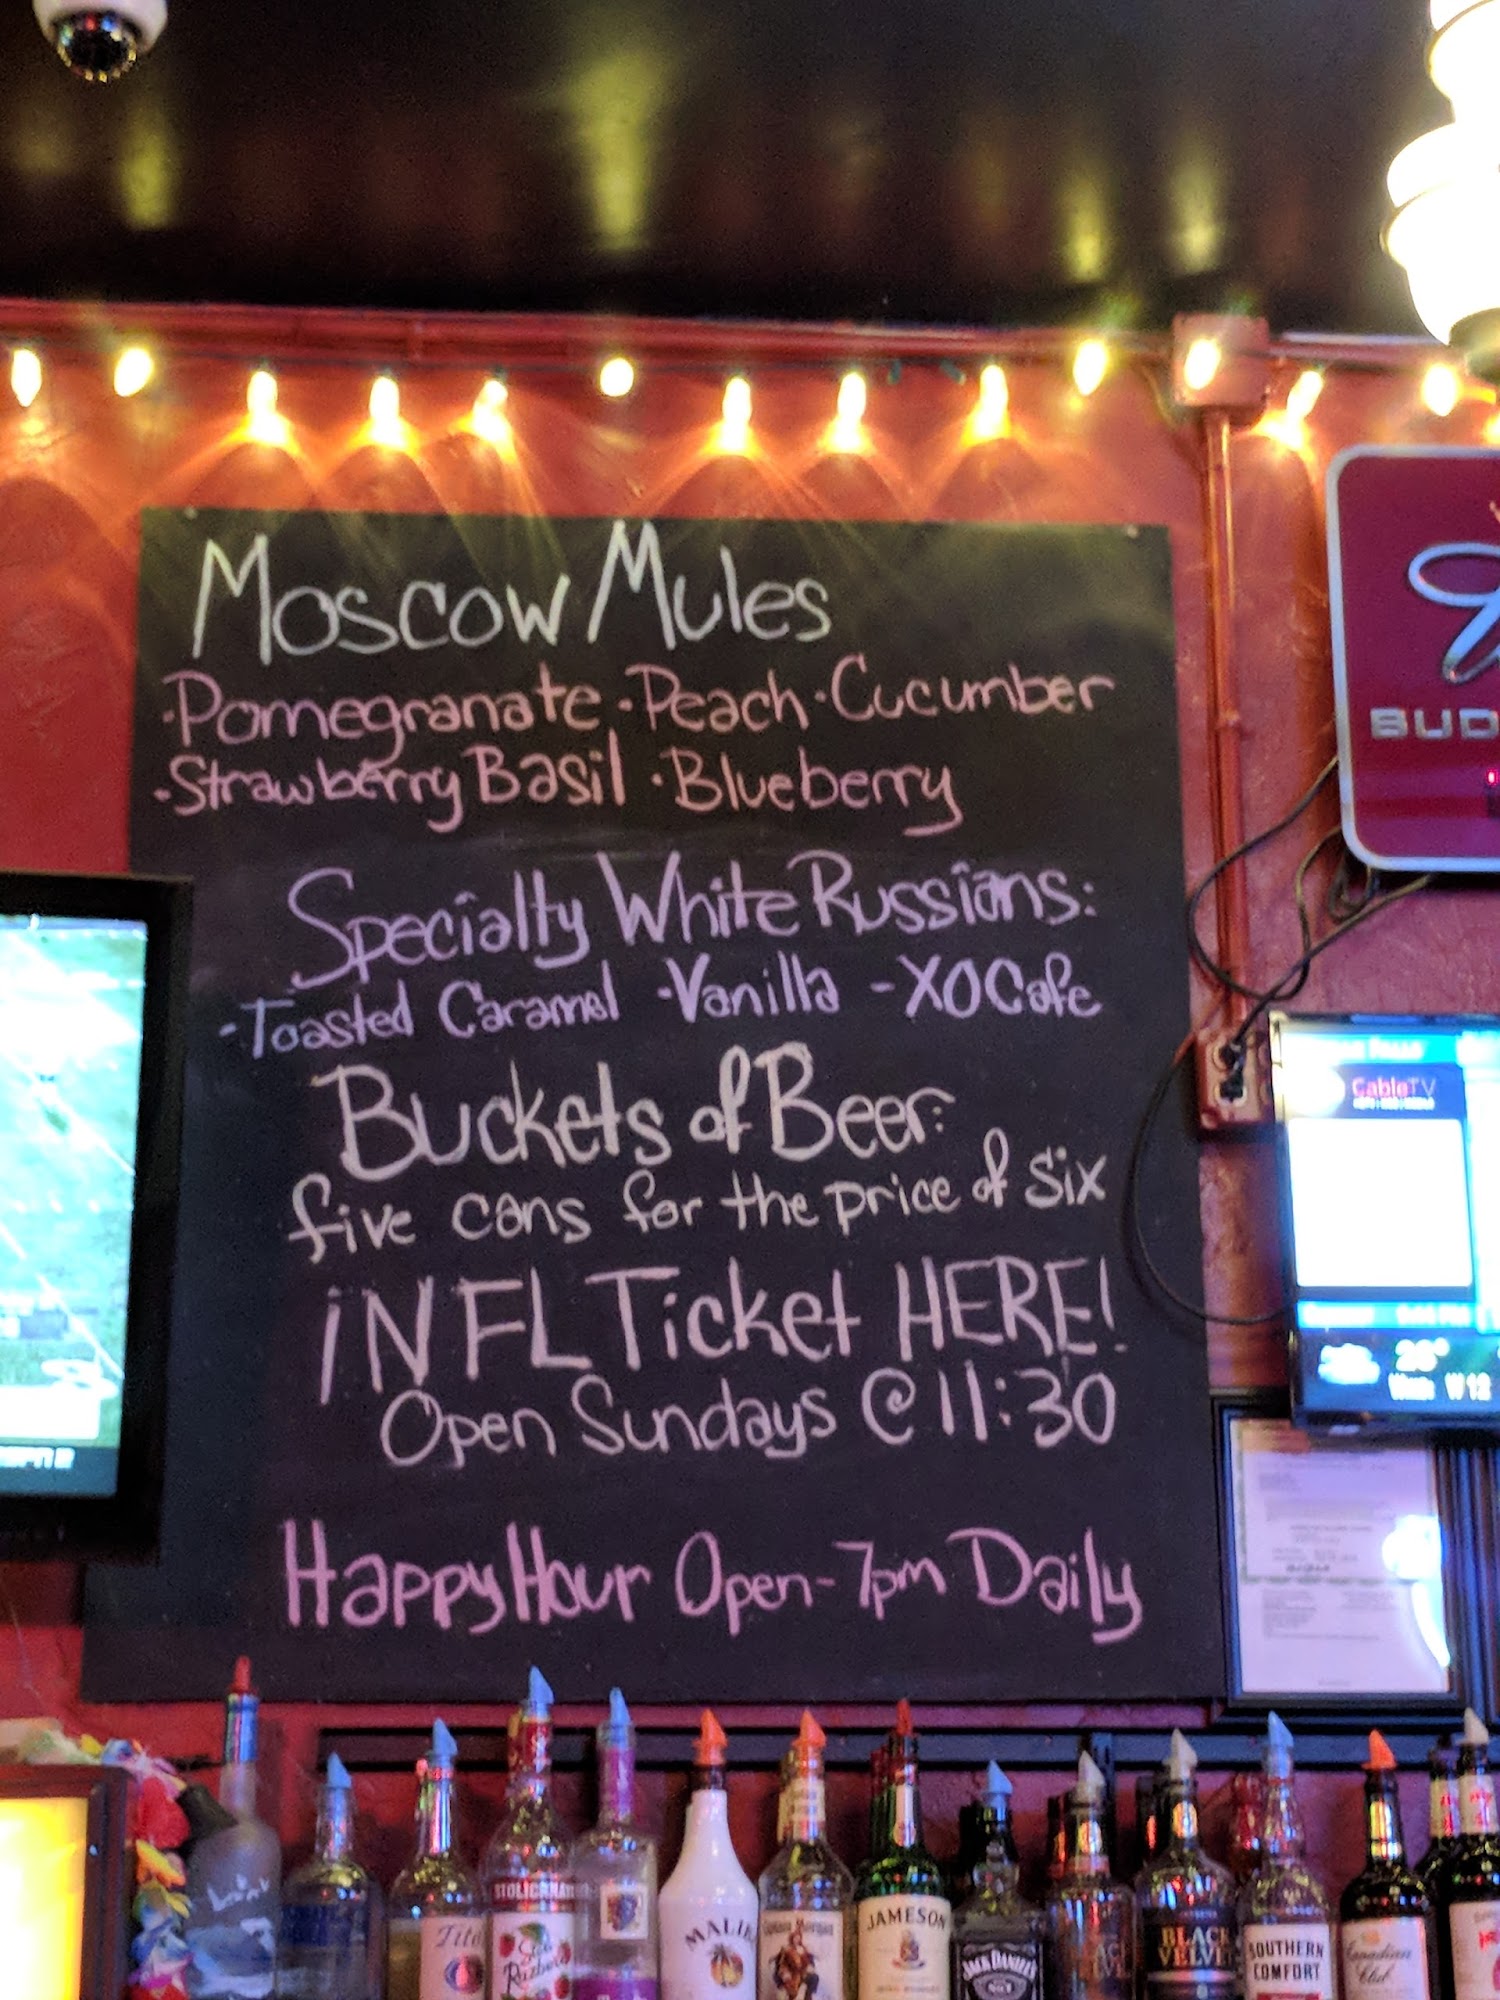 Moscow Mules
·Pomegranate ·Peach ·Cucumber
·Strawberry Basil ·Blueberry
Specialty White Russians:
-Toasted Caramel ·Vanilla -XO Cafe
Buckets of Beer:
five cans for the price of six
¡NFL Ticket HERE!
Open Sundays @ 11:30
Happy Hour Open-7pm Daily
BUD
CableTV
Tito
STOLICHNAYA
Razberi
MALIBU
Captain Morgan
JAMESON
JACK DANIEL'S
BLACK
VELVET
SOUTHERN
COMFORT
Canadian
Club